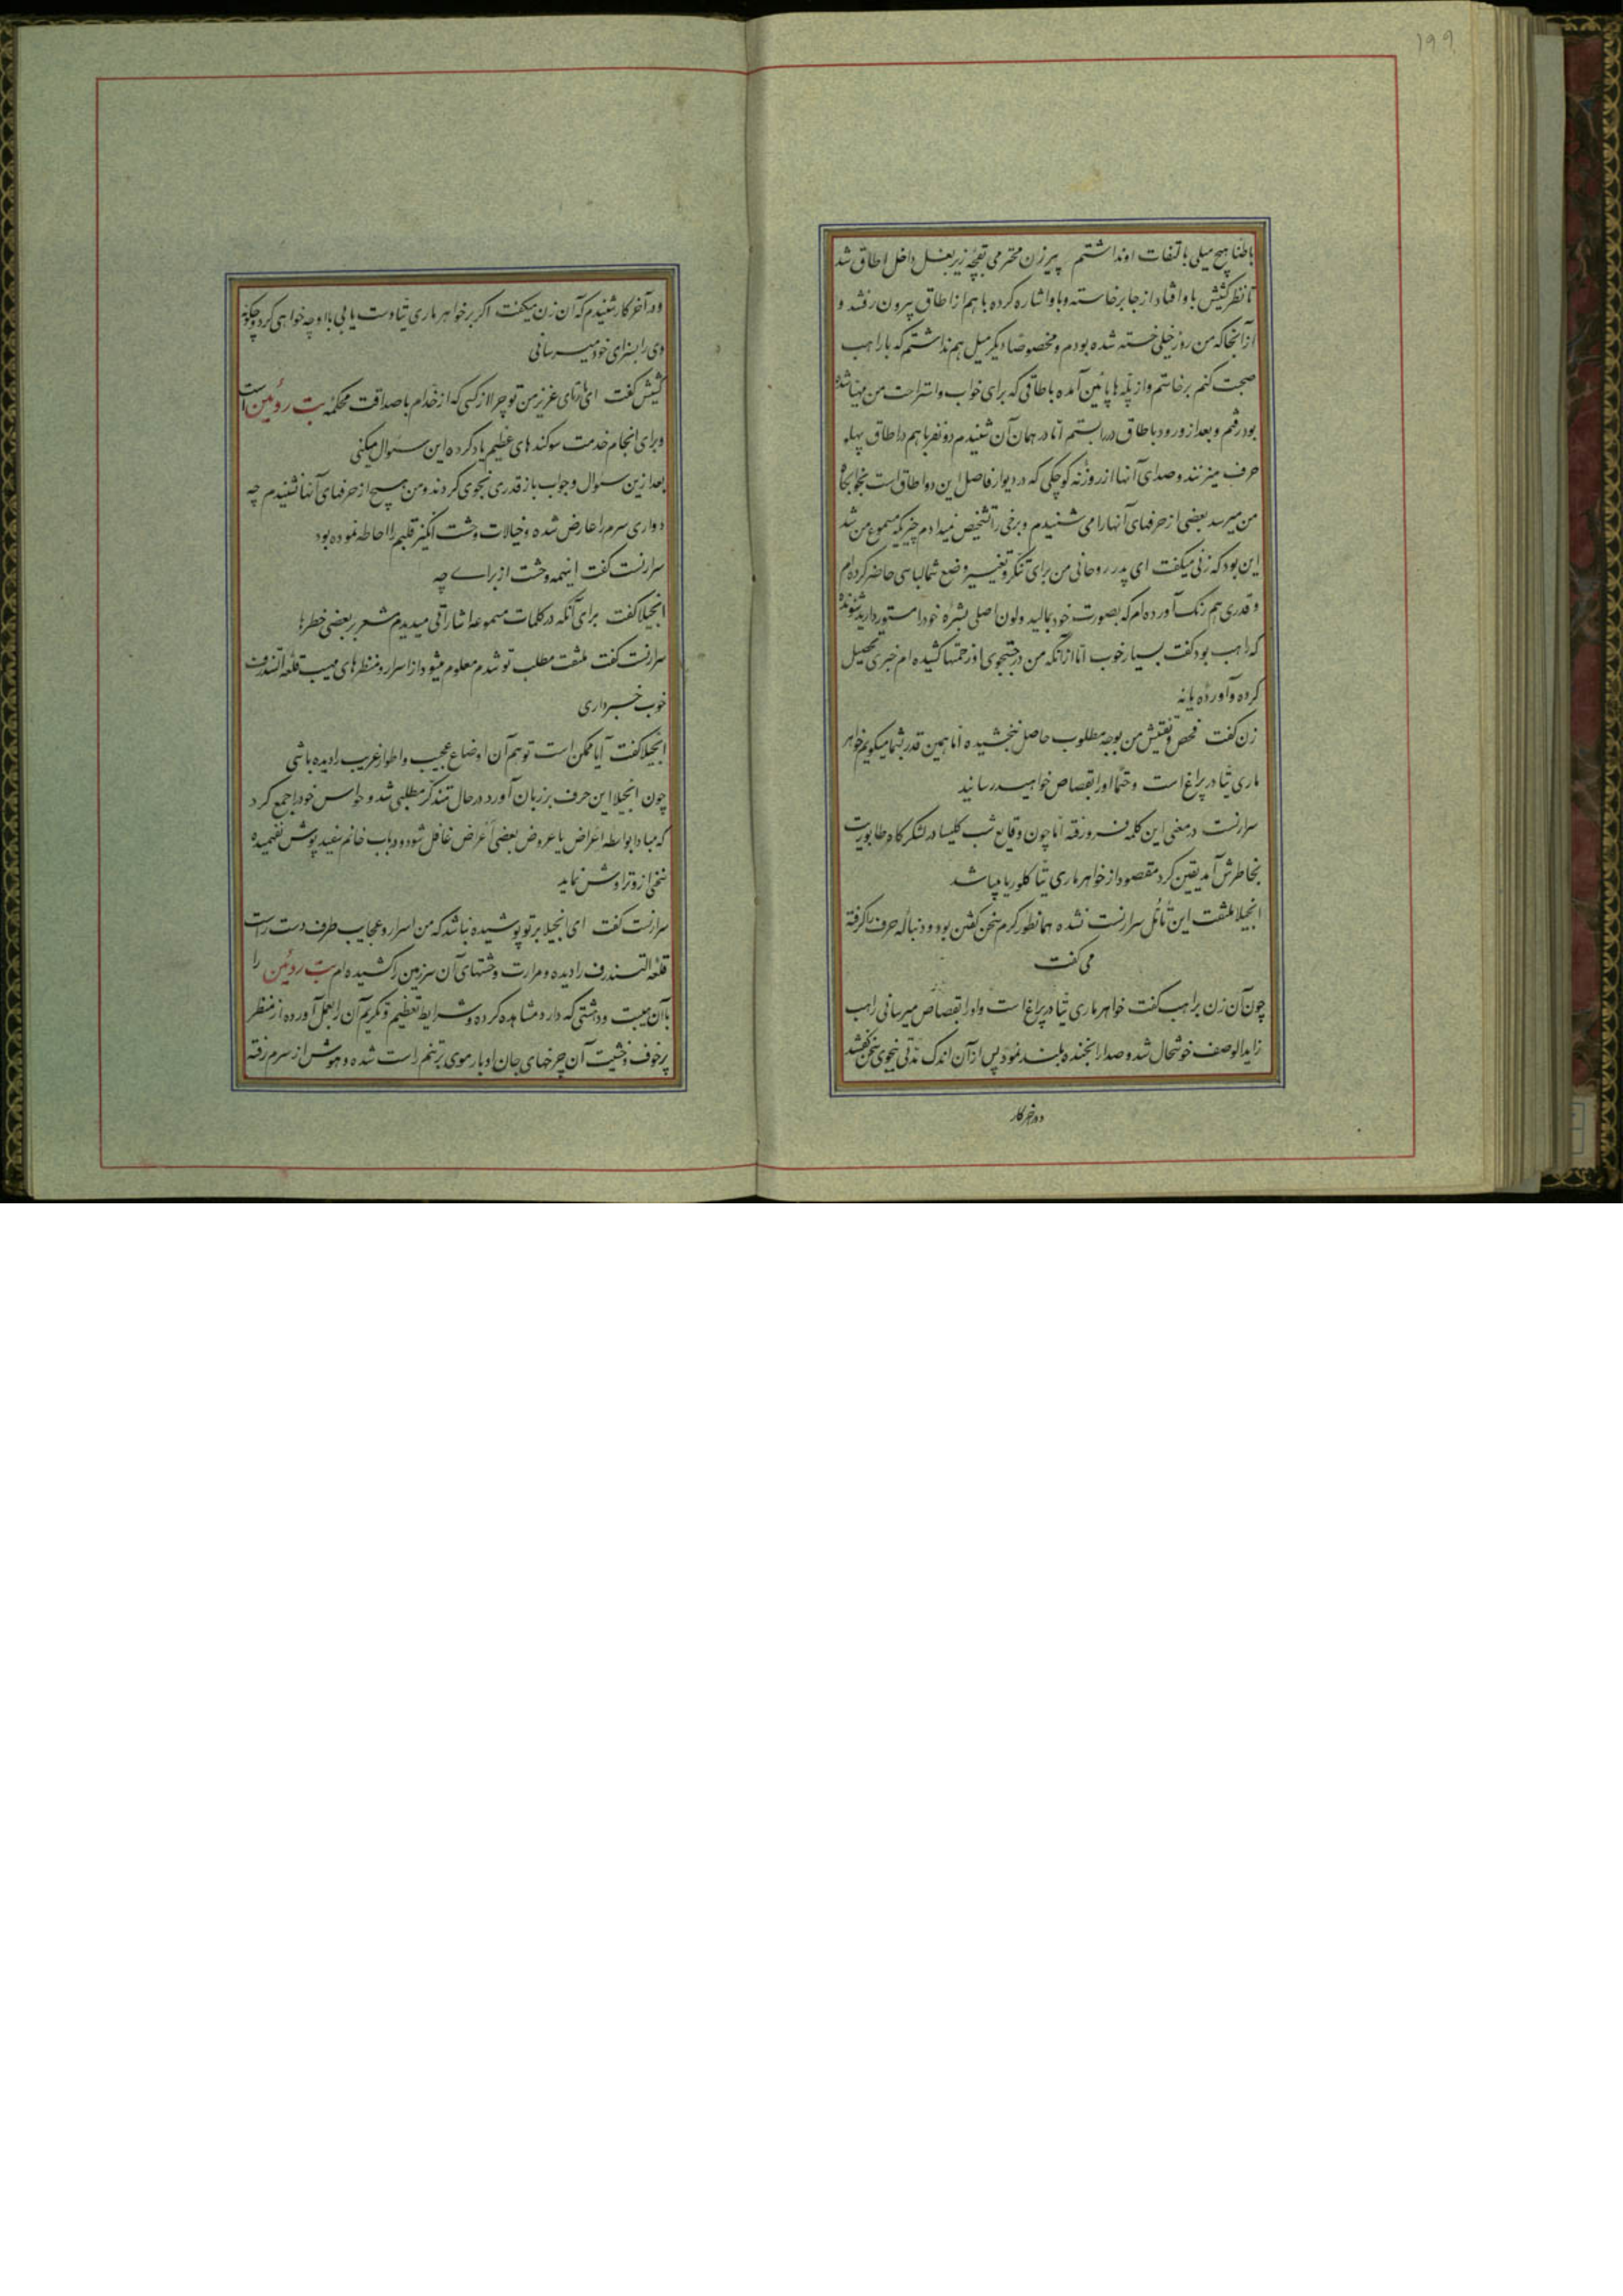 ۱۹۹
باطناً هیچ میلی بالتفات او نداشتم پیرزن محترمی بقچه زیر بغل داخل اطاق شد
تا نظر کشیش باو افتاد از جا برخاسته و باو اشاره کرده با هم از اطاق بیرون رفتند و
از آنجا که من روز خیلی خسته شده بودم و مخصوصاً دیگر میل هم نداشتم که با راهب
صحبت کنم برخاستم و از پله‌ها پائین آمده باطاقی که برای خواب و استراحت من مهیا شده
بود رفتم و بعد از ورود باطاق در را بستم اما در همان آن شنیدم دو نفر با هم در اطاق پهلو
حرف میزنند و صدای آنها از روزنه کوچکی که در دیوار فاصل این دو اطاق است بخوابگاه
من میرسد بعضی از حرفهای آنها را می شنیدم و برخی را تشخیص نمیدادم چیزیکه مسموع من شد
این بود که زنی میگفت ای پدر روحانی من برای تنکر و تغییر وضع شما لباسی حاضر کرده‌ام
و قدری هم رنگ آورده‌ام که بصورت خود بمالید و لون اصلی بشره خود را مستور دارید شنونده
که راهب بود گفت بسیار خوب اما از آنکه من در جستجوی او زحمتها کشیده‌ام خبری تحصیل
کرده و آورده یا نه
زن گفت فحص و تفتیش من بوجه مطلوب حاصل نبخشیده اما همین قدر بشما میگویم خواهر
ماری تتا در پراغ است و حتماً او را بقصاص خواهید رسانید
سرارنست در معنی این کلمه فرو رفته اما چون وقایع شب کلیسا در لشکرگاه طابوریت
بخاطرش آمد یقین کرد مقصود از خواهر ماری تتا کلوریا میباشد
انجیلا ملتفت این تأمل سرارنست نشده همانطور گرم سخن گفتن بود و دنباله حرف را گرفته
می گفت
چون آن زن براهب گفت خواهر ماری تتا در پراغ است و او را بقصاص میرسانی راهب
زایدالوصف خوشحال شد و صدا را بخنده بلند نمود پس از آن اندک مدتی بنجوی سخن گفتند
و در آخر کار
و در آخر کار شنیدم که آن زن میگفت اگر بر خواهر ماری تتا دست یابی با او چه خواهی کرد و چگونه
وی را بسزای خود میرسانی
کشیش گفت ای مارتای عزیز من تو چرا از کسی که از خدام با صداقت محکمه بت روئین است
و برای انجام خدمت سوگندهای عظیم یاد کرده این سئوال میکنی
بعد ازین سئوال و جواب باز قدری نجوی کردند و من هیچ از حرفهای آنها نشنیدم چه
دواری سرم را عارض شده و خیالات وحشت انگیز قلبم را احاطه نموده بود
سرارنست گفت اینهمه وحشت از برای چه
انجیلا گفت برای آنکه در کلمات مسموعه اشاراتی میدیدم مشعر بر بعضی خطرها
سرارنست گفت ملتفت مطلب تو شدم معلوم میشود از اسرار و منظرهای مهیب قلعه آلتندرف
خوب خبر داری
انجیلا گفت آیا ممکن است تو هم آن اوضاع عجیب و اطوار غریب را دیده باشی
چون انجیلا این حرف بر زبان آورد در حال متذکر مطلبی شد و حواس خود را جمع کرد
که مبادا بواسطه اغراض یا عروض بعضی اعراض غافل شود و در باب خانم سفید پوش نفهمیده
سخنی از و تراوش نماید
سرارنست گفت ای انجیلا بر تو پوشیده نباشد که من اسرار و عجایب طرف دست راست
قلعه آلتندرف را دیده و مرارت وحشتهای آن سرزمین را کشیده‌ام بت روئین را
با آن هیبت و دهشتی که دارد مشاهده کرده و شرایط تعظیم و تکریم آن را بعمل آورده از منظر
پر خوف و خشیت آن چرخهای جان اوبار موی بر تنم راست شده و هوش از سرم رفته